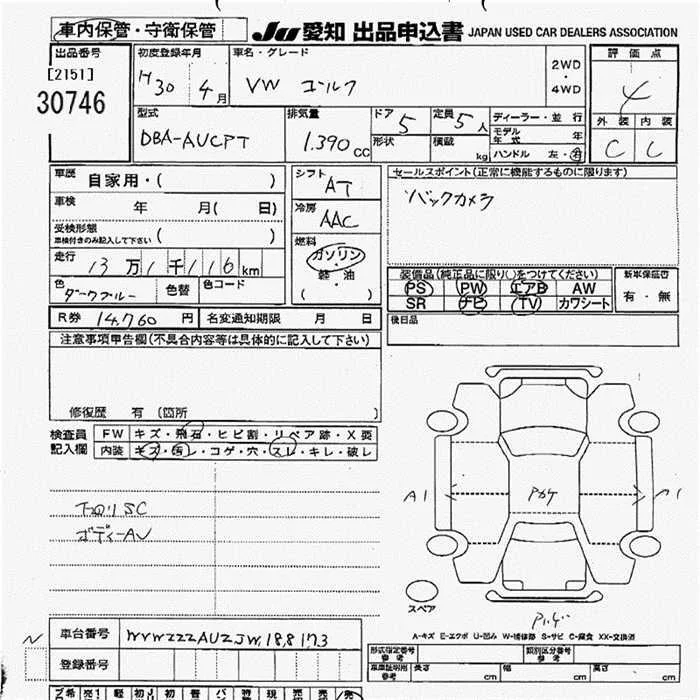 車内保管・守衛保管
JU 愛知 出品申込書 JAPAN USED CAR DEALERS ASSOCIATION
出品番号
[2151]
30746
初度登録年月
H30 4月
車名・グレード
VW ゴルフ
2WD
・
4WD
評価点
4
外装 内装
C C
型式
DBA-AUCPT
排気量
1.390 CC
ドア 5
形状
定員 5 人
積載 kg
ディーラー・並行
モデル年式 年
ハンドル 左・右
車歴
自家用・( )
車検 年 月( 日)
受検形態
車検付きのみ記入して下さい ( )
走行
13万1千116km
色
ダークブルー
色替
色コード
シフト
AT
冷房
AAC
燃料
ガソリン
・
軽・油
( )
セールスポイント(正常に機能するものに限ります)
バックカメラ
装備品(純正品に限り○をつけてください)
PS PW エアB AW
SR ナビ TV カワシート
新車保証書
有・無
R券 14,760 円 名変通知期限 月 日
後日品
注意事項申告欄(不具合内容等は具体的に記入して下さい)
修復歴 有(箇所 )
検査員記入欄
FW キズ・飛石・ヒビ割・リペア跡・X要
内装 キズ・汚レ・コゲ・穴・スレ・キレ・破レ
下回りSC
ボディーAU
A1
スペア
A-キズ E-エクボ U-凹み W-補修跡 S-サビ C-腐食 XX-交換済
N
車台番号 WVWZZZAUZJW188173
登録番号
形式指定番号
参考
類別区分番号
参考
車庫証明用
参考
長さ cm 幅 cm 高さ cm